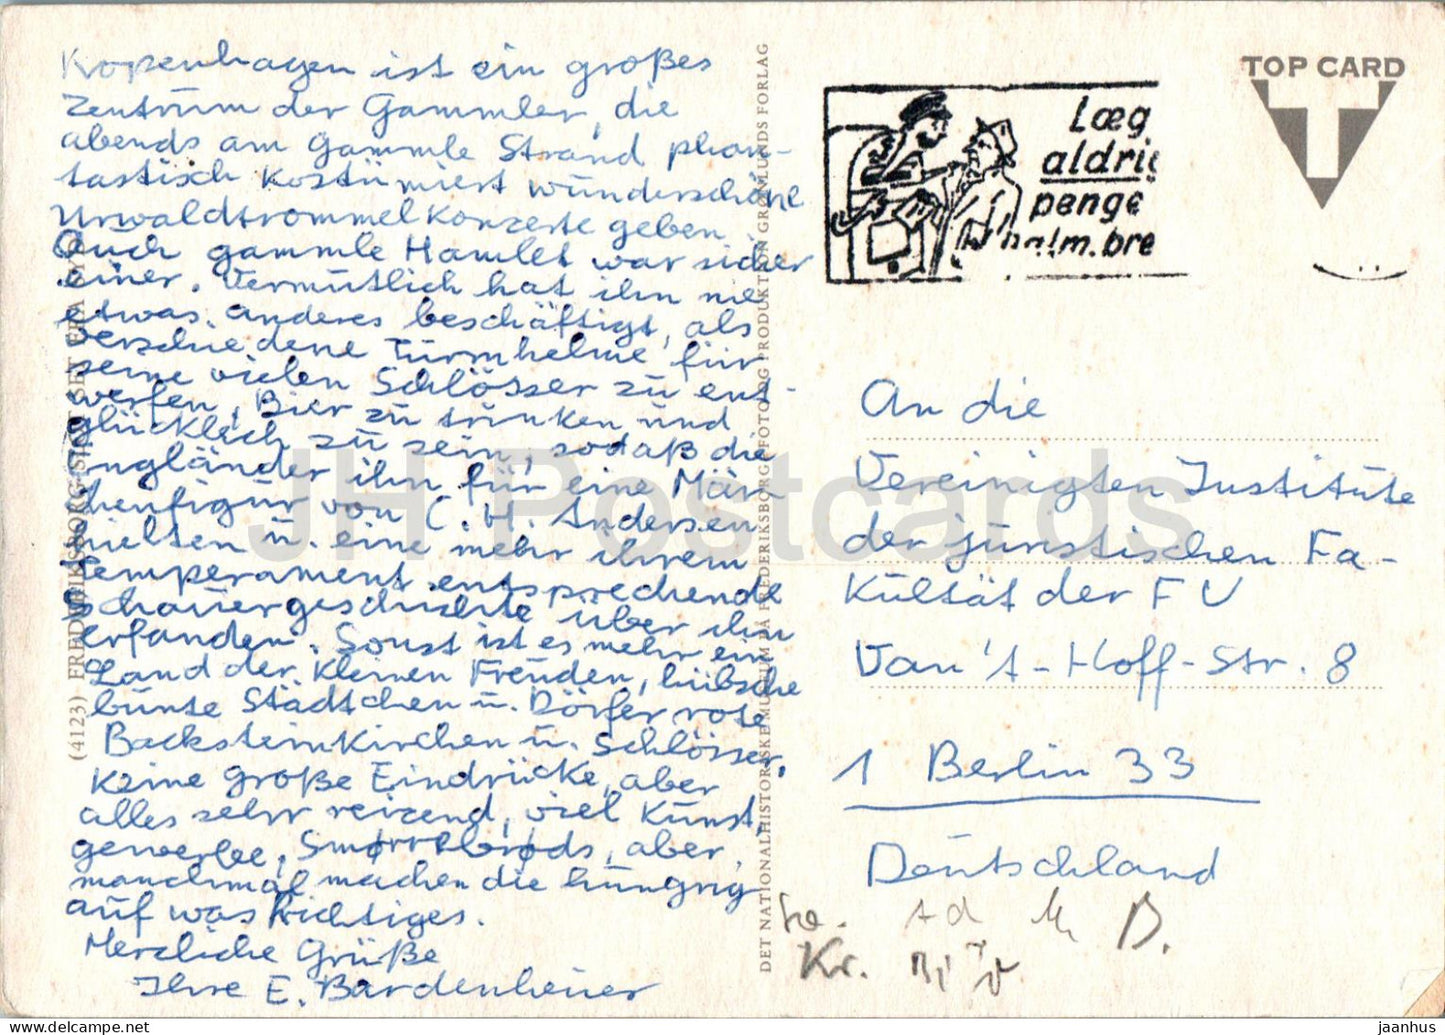 Kopenhagen ist ein großes
Zentrum der Gammler, die
abends am Gammle Strand phan-
tastisch kostümiert wunderschöne
Urwaldtrommelkonzerte geben.
Auch gammle Hamlet war sicher
einer. Vermutlich hat ihn nie
etwas anderes beschäftigt, als
verschiedene Turmhelme für
seine vielen Schlösser zu ent-
werfen, Bier zu trinken und
glücklich zu sein, sodaß die
Engländer ihn für eine Mär-
chenfigur von C. H. Andersen
hielten u. eine mehr ihrem
Temperament entsprechende
Schauergeschichte über ihn
erfanden. Sonst ist es mehr ein
Land der kleinen Freuden, hübsche
bunte Städtchen u. Dörfer rote
Backsteinkirchen u. Schlösser.
Keine große Eindrücke, aber
alles sehr reizend, viel Kunst,
gewerbe, Smørrebrøds, aber,
manchmal machen die hungrig
auf was Richtiges.
Herzliche Grüße
Ihre E. Bardenheuer
(4123) FREDERIKSBORG SLOT SET FRA
DET NATIONALHISTORISKE MUSEUM PÅ FREDERIKSBORG FOTO OG PRODUKTION GRØNLUNDS FORLAG
Læg
aldrig
penge
alm. bre
TOP CARD
T
An die
Vereinigten Institute
der juristischen Fa-
kultät der FU
Van't-Hoff-Str. 8
1 Berlin 33
Deutschland
Kr.
B.
JH Postcards
www.jhpostcards.com
jaanhus